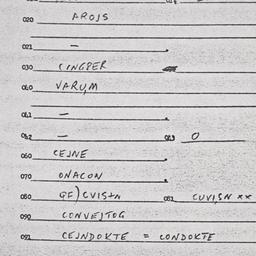 020 AROJS
021 –
030 CINGPER
040 VARUM
041 –
042 – 043 O
060 CEJNE
070 ONACON
080 GF)CVISTN 082 CUVISN xx
090 CONVEJTOG
092 CEJNDOKTE = CONDOKTE